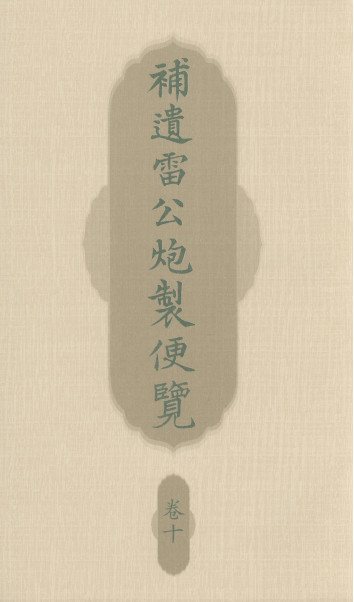 補遺雷公炮製便覽
卷十